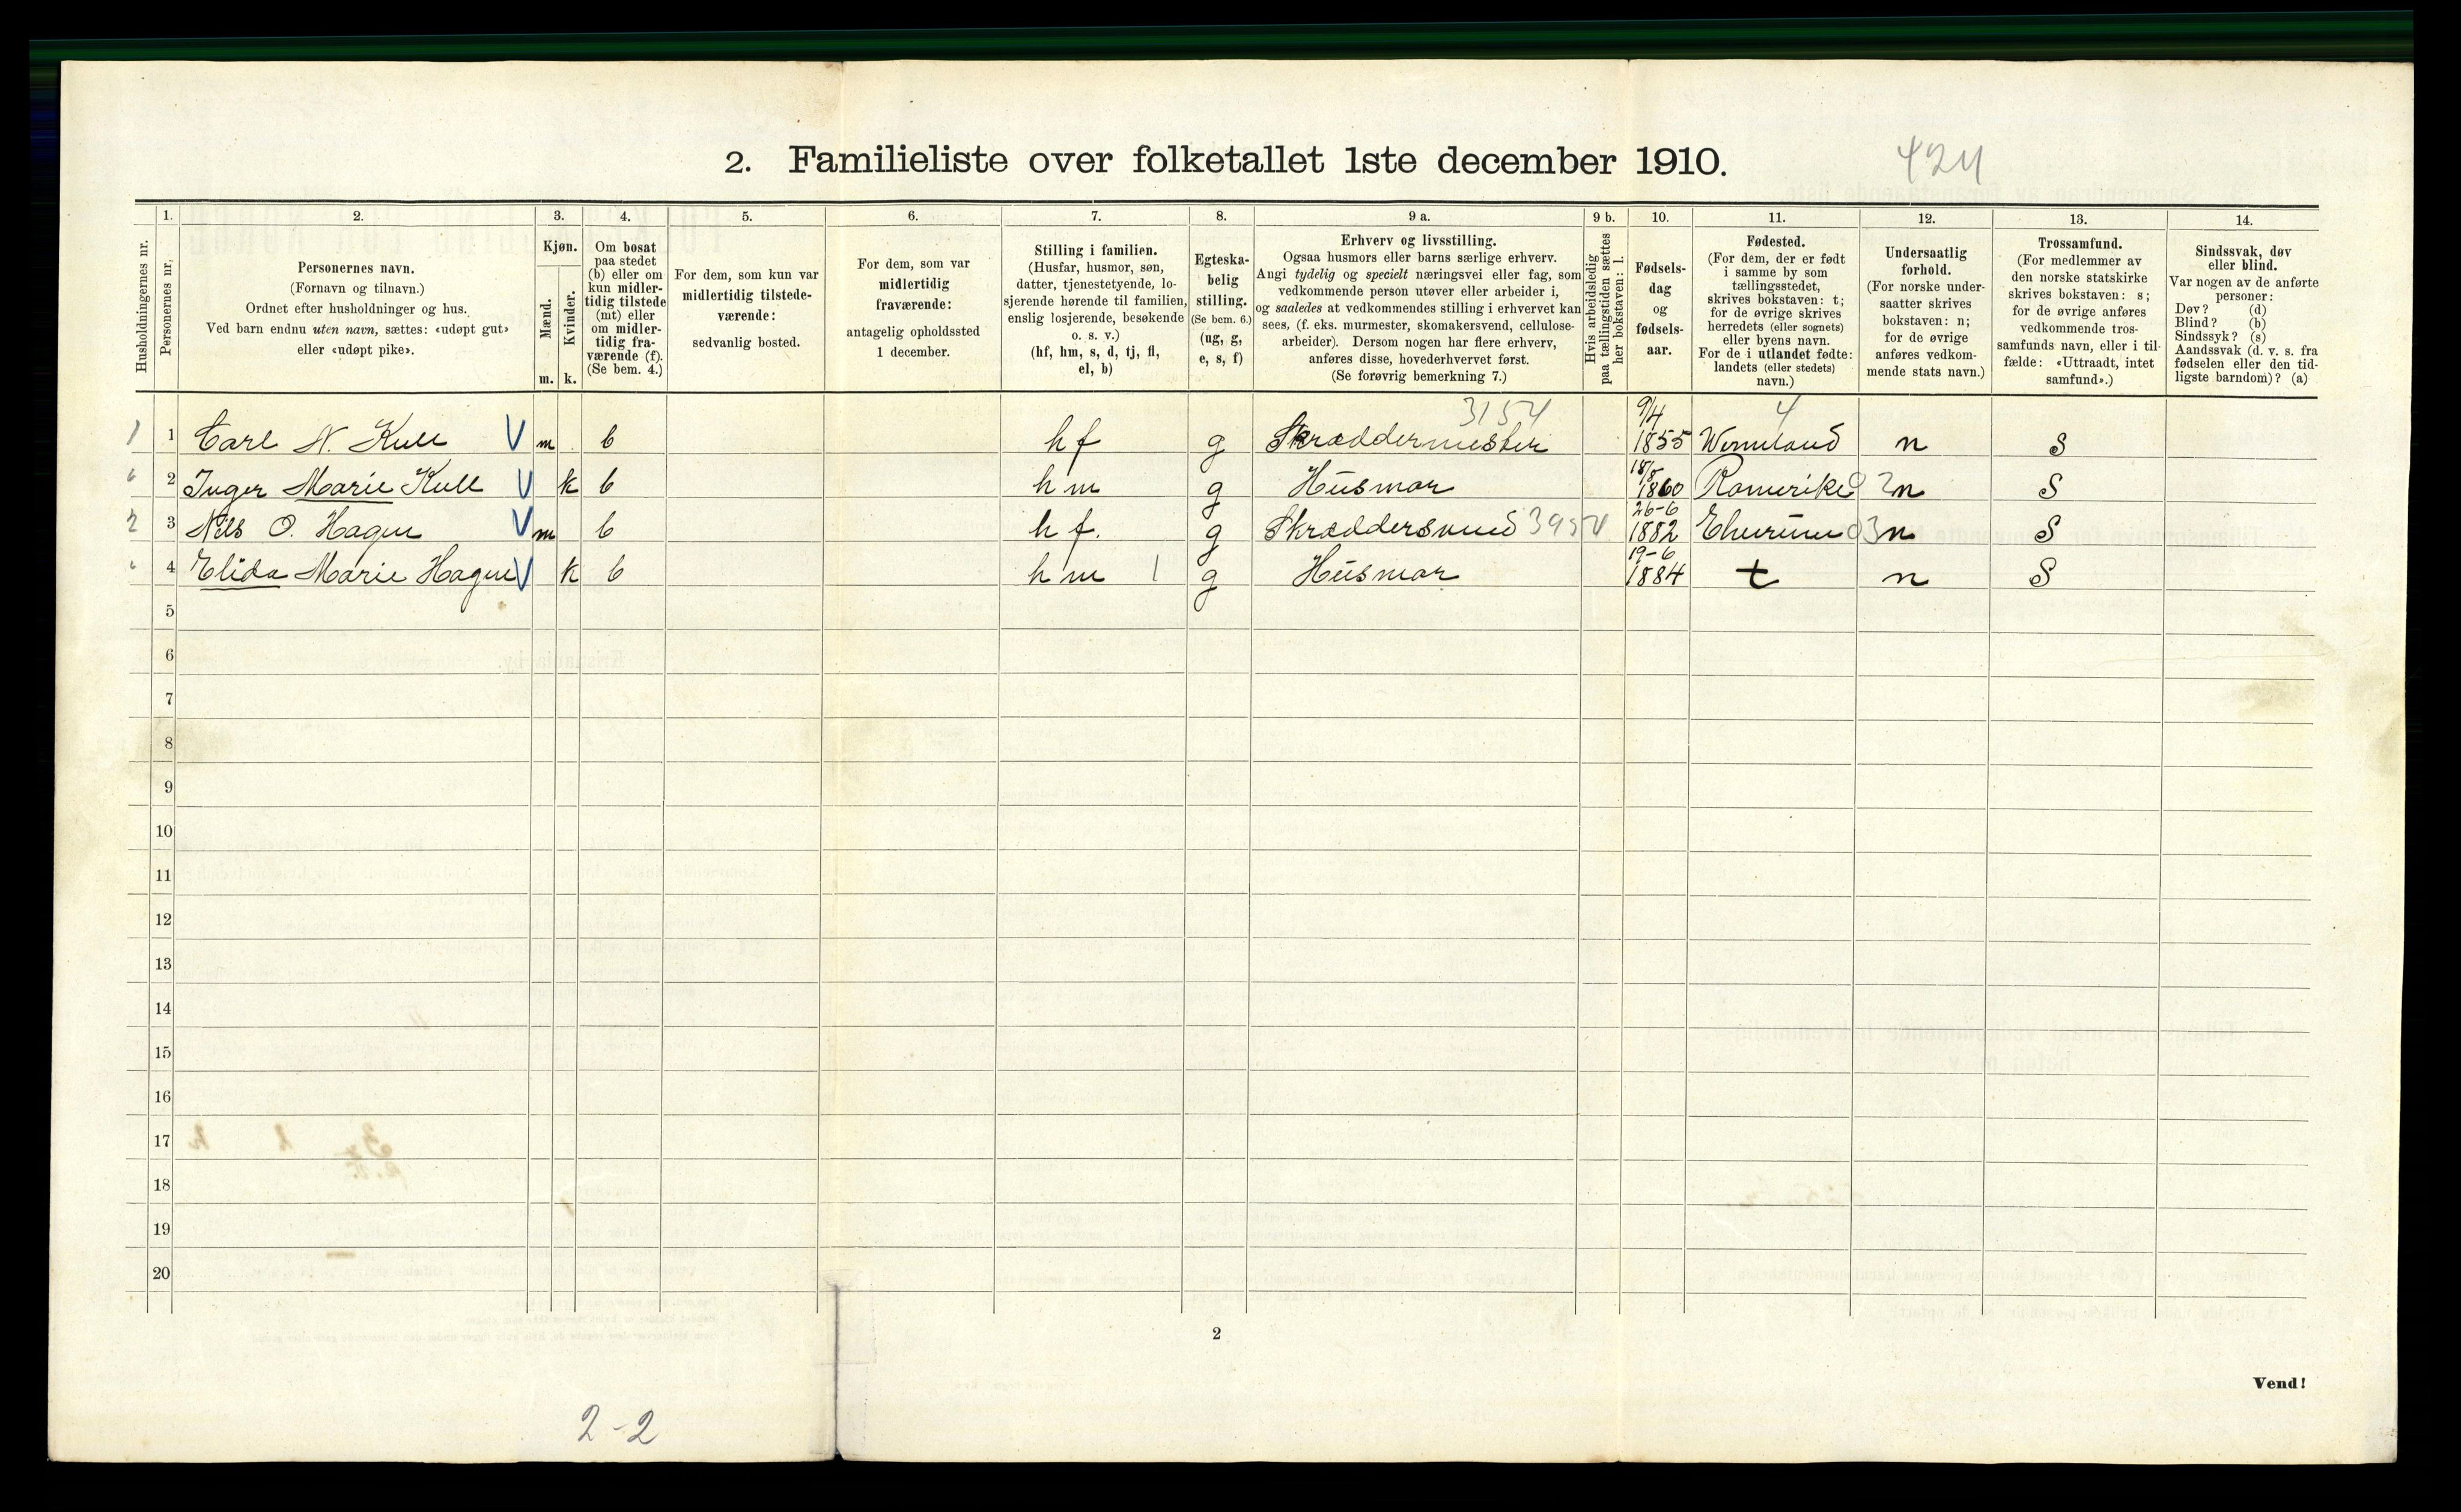 2. Familieliste over folketallet 1ste december 1910.
424
Husholdningernes nr.
1.
Personernes nr.
2.
Personernes navn.
(Fornavn og tilnavn.)
Ordnet efter husholdninger og hus.
Ved barn endnu uten navn, sættes: «udøpt gut»
eller «udøpt pike».
3.
Kjøn.
Mænd.
Kvinder.
m. k.
4.
Om bosat
paa stedet
(b) eller om
kun midler-
tidig tilstede
(mt) eller
om midler-
tidig fra-
værende (f).
(Se bem. 4.)
5.
For dem, som kun var
midlertidig tilstede-
værende:
sedvanlig bosted.
6.
For dem, som var
midlertidig
fraværende:
antagelig opholdssted
1 december.
7.
Stilling i familien.
(Husfar, husmor, søn,
datter, tjenestetyende, lo-
sjerende hørende til familien,
enslig losjerende, besøkende
o. s. v.)
(hf, hm, s, d, tj, fl,
el, b)
8.
Egteska-
belig
stilling.
(Se bem. 6.)
(ug, g,
e, s, f)
9 a.
Erhverv og livsstilling.
Ogsaa husmors eller barns særlige erhverv.
Angi tydelig og specielt næringsvei eller fag, som
vedkommende person utøver eller arbeider i,
og saaledes at vedkommendes stilling i erhvervet kan
sees, (f. eks. murmester, skomakersvend, cellulose-
arbeider). Dersom nogen har flere erhverv,
anføres disse, hovederhvervet først.
(Se forøvrig bemerkning 7.)
9 b.
Hvis arbeidsledig
paa tællingstiden sættes
her bokstaven: l.
10.
Fødsels-
dag
og
fødsels-
aar.
11.
Fødested.
(For dem, der er født
i samme by som
tællingsstedet,
skrives bokstaven: t;
for de øvrige skrives
herredets (eller sognets)
eller byens navn.
For de i utlandet fødte:
landets (eller stedets)
navn.)
12.
Undersaatlig
forhold.
(For norske under-
saatter skrives
bokstaven: n;
for de øvrige
anføres vedkom-
mende stats navn.)
13.
Trossamfund.
(For medlemmer av
den norske statskirke
skrives bokstaven: s;
for de øvrige anføres
vedkommende tros-
samfunds navn, eller i til-
fælde: «Uttraadt, intet
samfund».)
14.
Sindssvak, døv
eller blind.
Var nogen av de anførte
personer:
Døv? (d)
Blind? (b)
Sindssyk? (s)
Aandssvak (d. v. s. fra
fødselen eller den tid-
ligste barndom)? (a)
3154 9/4 4
1 1 Carl N. Kull V m b hf g Skræddermester 1855 Wermland n S
18/8
2 Inger Marie Kull V k b hm g Husmor 1860 Romerike 02 n S
26-6
2 3 Nils O. Hagen V m b hf. g Skræddersvend 3954 1882 Elverum 03 n S
19-6
4 Elida Marie Hagen V k b hm 1 g Husmor 1884 t n S
5
6
7
8
9
10
11
12
13
14
15
16
17
18
19
20
2
Vend!
2-2